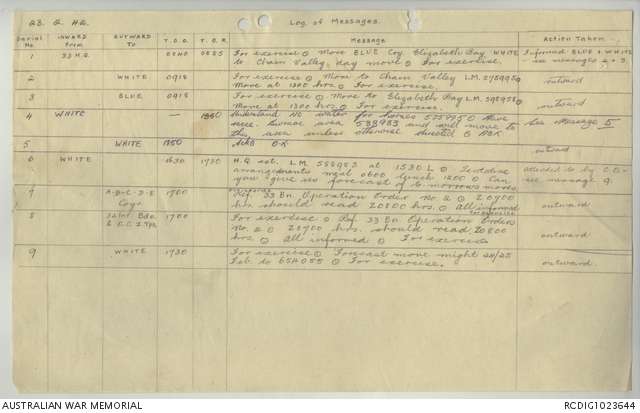 Log of Messages.
Serial No. INWARD FROM OUTWARD TO T.O.O. T.O.R. Message Action Taken
1 33 H.Q. 0835 For exercise ⊙ Move BLUE Coy. Elizabeth Bay WHITE Informed BLUE & WHITE
to Chain Valley, day move ⊙ For exercise. - see messages 2 & 3.
2 WHITE 0918 For exercise ⊙ Move to Chain Valley L.M.
Move at 1300 hrs ⊙ For exercise. outward
3 BLUE 0918 For exercise ⊙ Move to Elizabeth Bay L.M.
Move at 1300 hrs. ⊙ For exercise. outward
4 WHITE — Understand no water for horses 575995 ⊙ Have See message 5
area 588983 and will move to
this area unless otherwise directed ⊙ ACK
5 WHITE 1350 Ack 4 outward
6 WHITE 1630 1730 H.Q. est. L.M. 588983 at 1530 L ⊙ Tentative attended to by C.O. -
arrangements meal 0600 lunch 1200 ⊙ Can see message 9.
you give us forecast of tomorrows moves
7 A-B-C-D-E 1700 Ref. 33 Bn. Operation Order No. 2 ⊙ 20700
Coys. hrs. should read 20800 hrs. ⊙ All informed outward
8 Bde. 1700 For exercise ⊙ Ref. 33 Bn Operation Orders
No. 2 ⊙ 20700 hrs. should read 20800
hrs ⊙ All informed ⊙ For exercise outward
9 WHITE 1730 For exercise ⊙ Forecast move night 24/25
Feb. to 654055 ⊙ For exercise. outward.
AUSTRALIAN WAR MEMORIAL RCDIG1023644